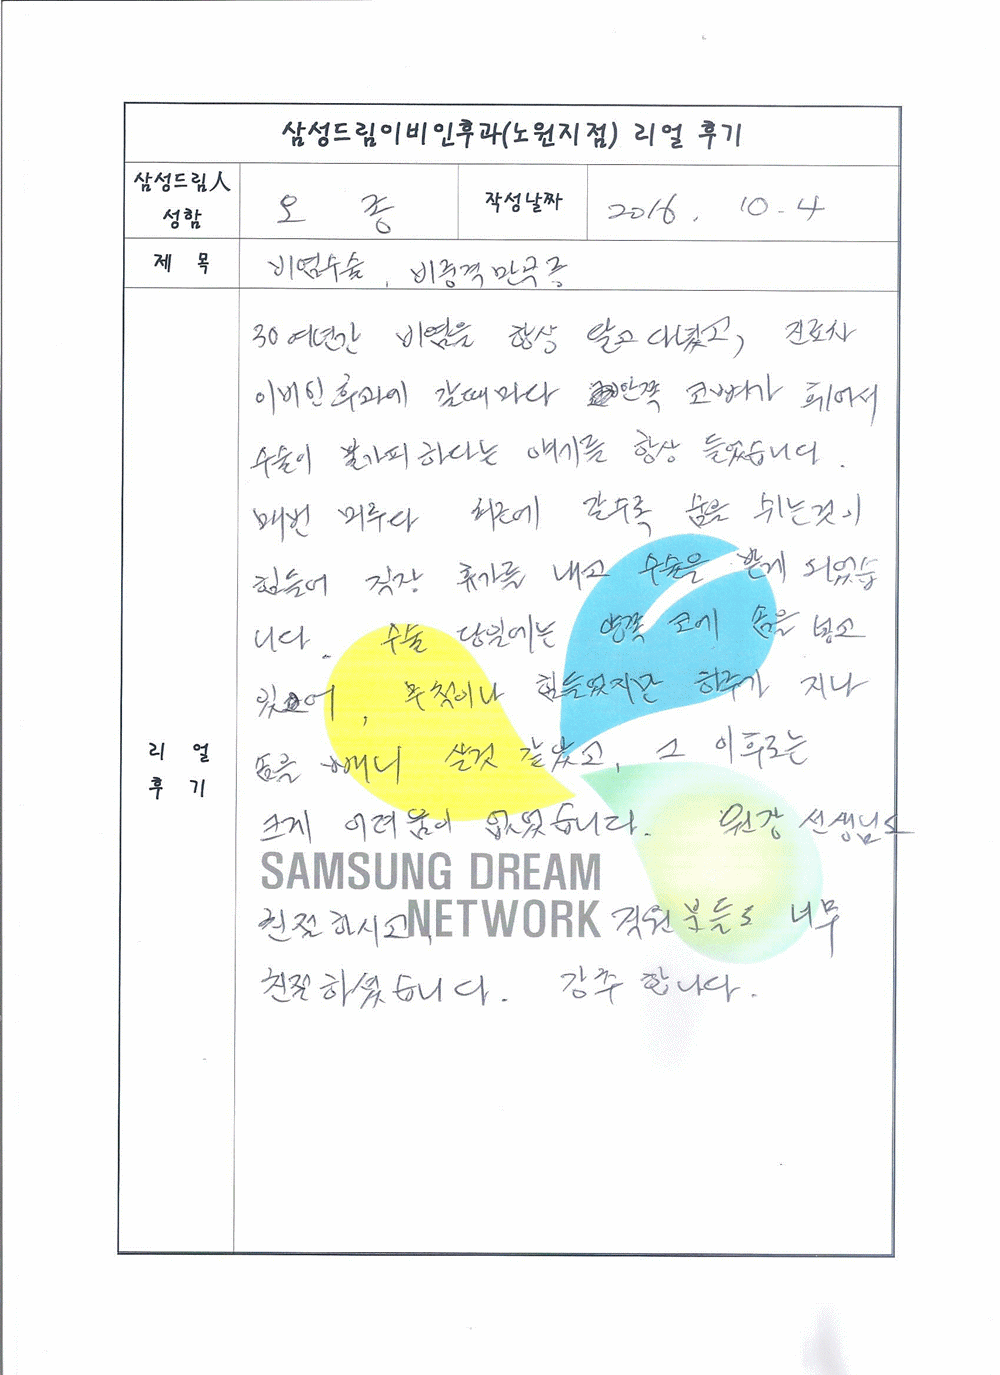 삼성드림이비인후과(노원지점) 리얼 후기
삼성드림人 성함
오 종
작성날짜
2016. 10-4
제 목
비염수술, 비중격만곡증
리 얼 후 기
30여년간 비염을 항상 달고 다녔고, 진료차
이비인후과에 갈때마다 안쪽 코뼈가 휘어서
수술이 불가피하다는 얘기를 항상 들었습니다.
매번 미루다 최근에 갈수록 숨을 쉬는것이
힘들어 직장 휴가를 내고 수술을 받게 되었습
니다. 수술 당일에는 양쪽 코에 솜을 넣고
있어, 무척이나 힘들었지만 하루가 지나
솜을 빼니 살것 같았고, 그 이후로는
크게 어려움이 없었습니다. 원장 선생님도
친절하시고, 직원분들도 너무
친절하셨습니다. 강추 합니다.
SAMSUNG DREAM
NETWORK